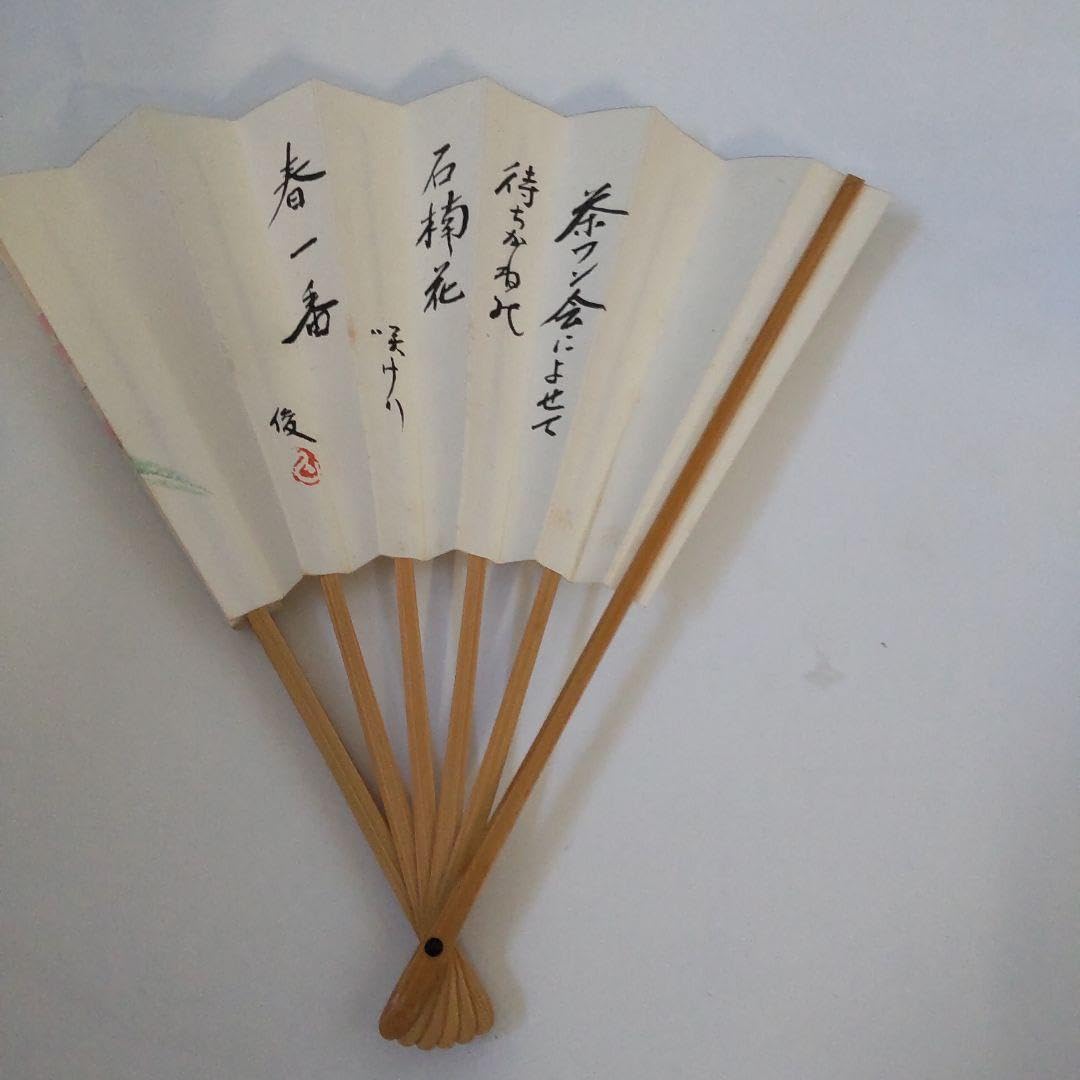 茶ワン会によせて
待ちかねて
石楠花
咲けり
春一番
俊